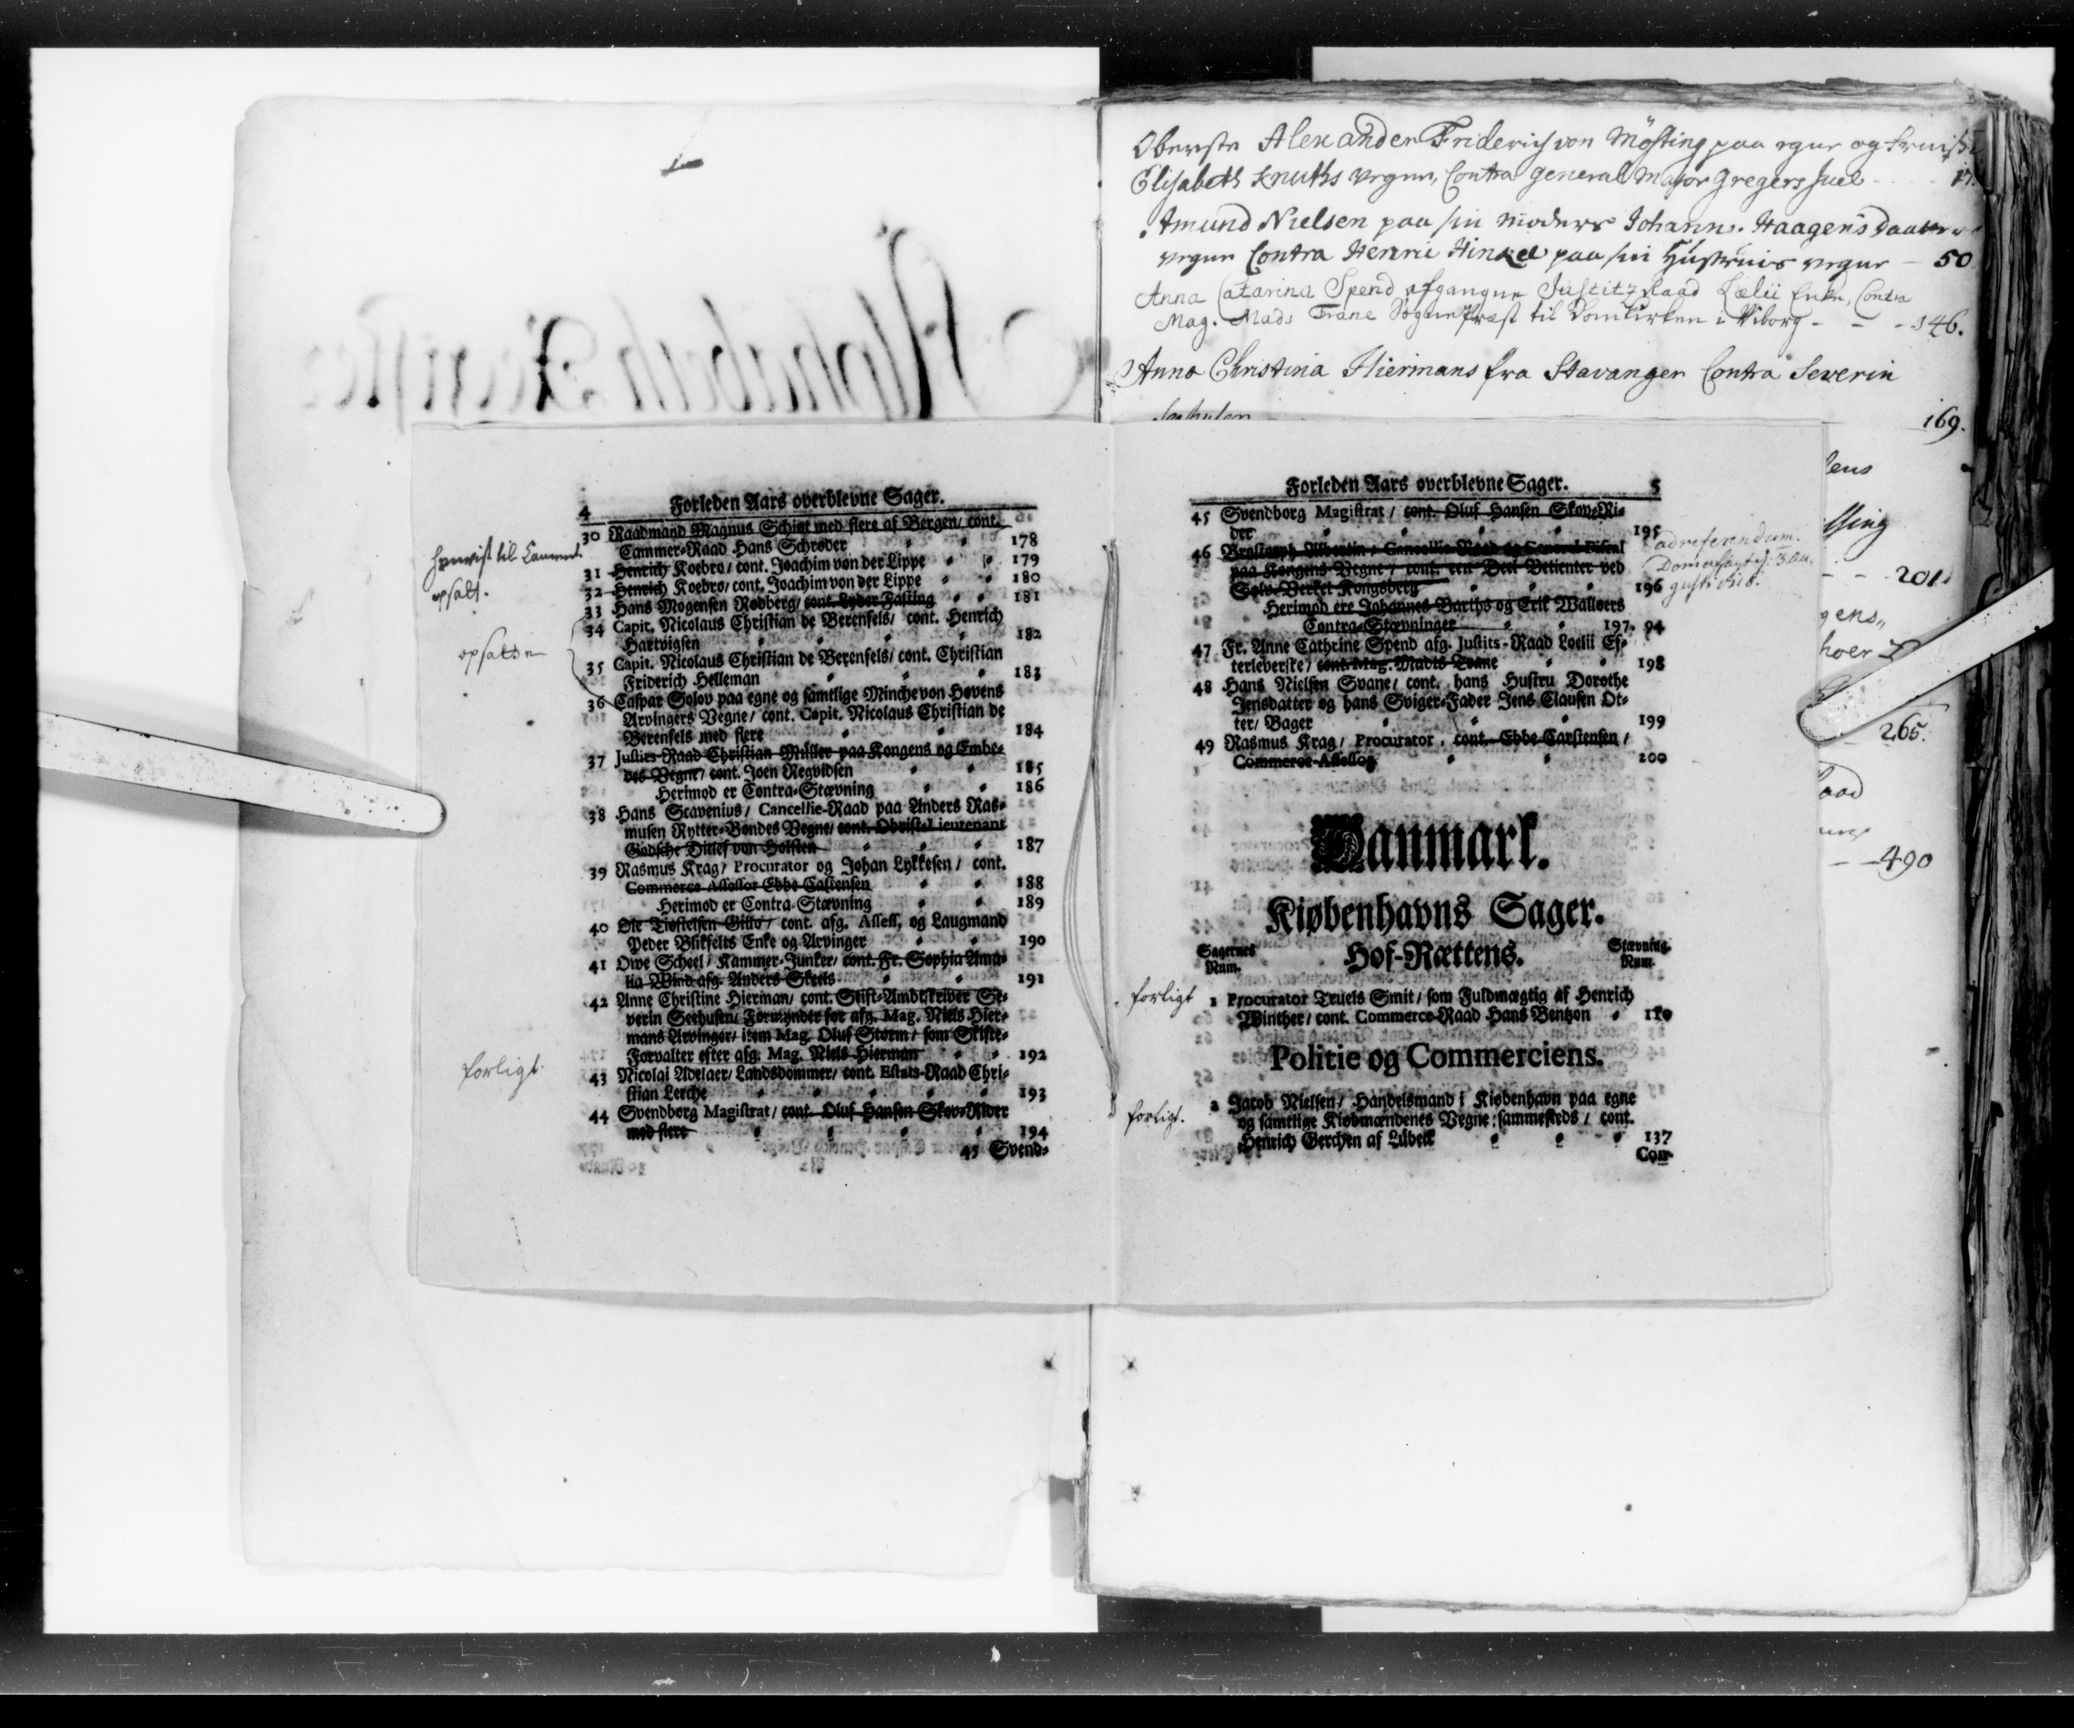 Oberste Alexander Friderich von Mösting paa egne og
Elisabeth Knuths vegne, Contra General Major Gregers Juel - - 17
Amund Nielsen paa sin moders Johanne Haagensdaatter
vegne Contra Henric Hinkel paa sin Hustrues vegne - 50
Anna Catarina Spend afgangne Justitz Raad Lælii Enke, Contra
Mag. Mads Trane Sogne Præst til Domkirken i Viborg - - - 146.
Anna Christina Hiermans fra Stavanger Contra Severin
169.
201
265.
490
4 Forleden Aars overblevne Sager.
30 Raadmand Magnus Schiøt med flere af Bergen/ cont.
Cammer-Raad Hans Schrøder 178
31 Henrich Koebro/ cont. Joachim von der Lippe 179
opsatt.
32 Henrich Koebro/ cont. Joachim von der Lippe 180
33 Hans Mogensen Rødberg/ cont. Lyder Fasting 181
34 Capit. Nicolaus Christian de Berensels/ cont. Henrich
Hartvigsen 182
opsatte
35 Capit. Nicolaus Christian de Berensels/ cont. Christian
Friderich Helleman 183
36 Caspar Solov paa egne og samtlige Minche von Hovens
Arvingers Vegne/ cont. Capit. Nicolaus Christian de
Berensels med flere 184
37 Justits-Raad Christian Müller paa Kongens og Embe-
des Vegne/ cont. Joen Regvidsen 185
Herimod er Contra-Stævning 186
38 Hans Scavenius/ Cancellie-Raad paa Anders Ras-
musen Rytter-Bondes Vegne/ cont. Obrist-Lieutenant
Godsche Ditlef von Holsten 187
39 Rasmus Krag/ Procurator og Johan Lykkesen/ cont.
Commerce-Assessor Ebbe Castensen 188
Herimod er Contra-Stævning 189
40 Ole Tiøstelsen Gitlo/ cont. afg. Assess. og Laugmand
Peder Blikfelts Enke og Arvinger 190
41 Owe Scheel/ Kammer-Junker/ cont. Fr. Sophia Ama-
lia Wind afg. Anders Skeels 191
42 Anne Christine Hierman/ cont. Stift-Amdtskriver Se-
verin Seehusen/ Formynder for afg. Mag. Niels Hier-
mans Arvinger/ item Mag. Oluf Storm/ som Skifte-
Forvalter efter afg. Mag. Niels Hierman 192
forligt.
43 Nicolai Adelaer/ Landsdommer/ cont. Estats-Raad Chri-
stian Lerche 193
44 Svendborg Magistrat/ cont. Oluf Hansen Skov-Rider
med flere 194
45 Svend-
Forleden Aars overblevne Sager. 5
45 Svendborg Magistrat/ cont. Oluf Hansen Skov-Ri-
der 195
ad referendum.
46 Cancellie-Raad og General-Fiscal
paa Kongens Vegne/ cont. een Deel Betienter ved
Sølv-Verket Kongsberg 196
Herimod ere Johannes Barths og Erik Walløers
Contra-Stævninger 197. 94
47 Fr. Anne Cathrine Spend afg. Justits-Raad Loelii Ef-
terleverske/ cont. Mag. Madts Trane 198
48 Hans Nielsen Svane/ cont. hans Hustru Dorothe
Jensdatter og hans Sviger-Fader Jens Clausen Ot-
ter/ Bager 199
49 Rasmus Krag/ Procurator, cont. Ebbe Carstensen/
Commerce-Assessor 200
Danmark.
Kiøbenhavns Sager.
Sagernes Num.
Hof-Rættens.
Stævning. Num.
forligt
1 Procurator Truels Smit/ som Fuldmægtig af Henrich
Winther/ cont. Commerce-Raad Hans Bentzon 110
Politie og Commerciens.
forligt.
2 Jacob Nielsen/ Handelsmand i Kiøbenhavn paa egne
og samtlige Kiøbmændenes Vegne sammesteds/ cont.
Henrich Gerchen af Lübeck 137
Con-